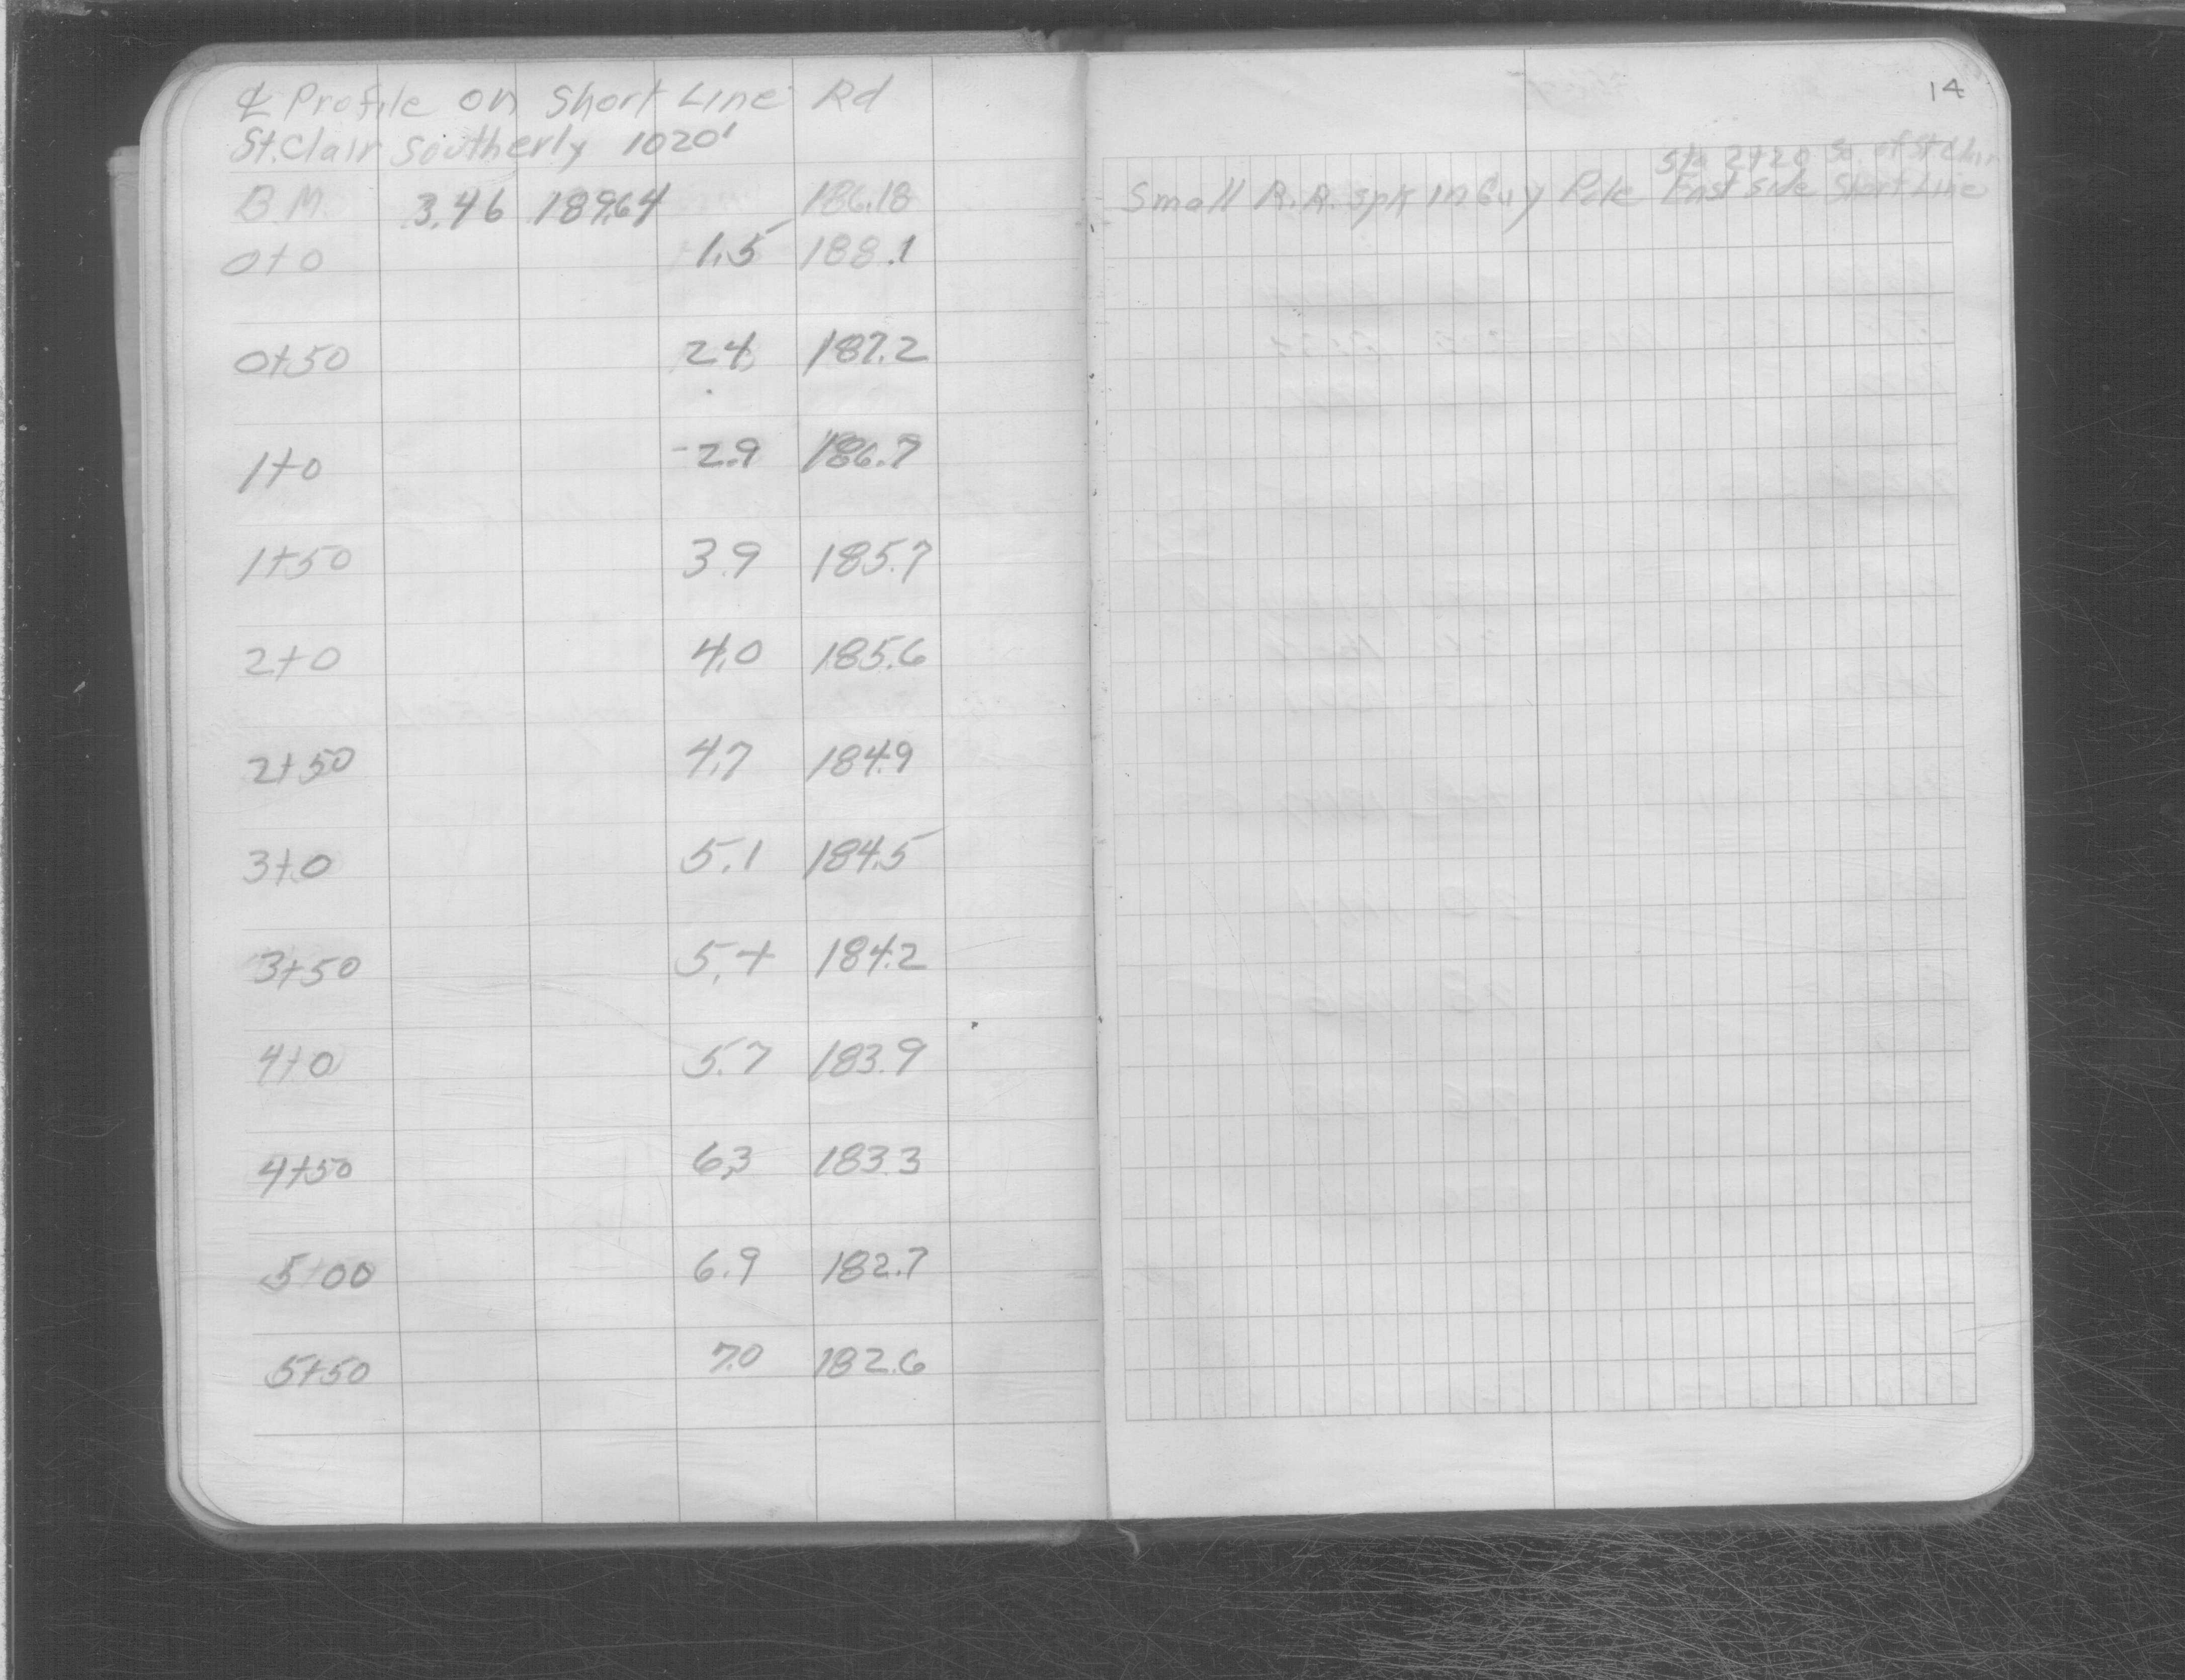 ℄ Profile on Short Line Rd
St. Clair Southerly 1020'
B.M. 3.46 189.64 186.18
0+0 1.5 188.1
0+50 2.4 187.2
1+0 -2.9 186.7
1+50 3.9 185.7
2+0 4.0 185.6
2+50 4.7 184.9
3+0 5.1 184.5
3+50 5.4 184.2
4+0 5.7 183.9
4+50 6.3 183.3
5+00 6.9 182.7
5+50 7.0 182.6
14
Sta 2+20 So. of St Clair
Small R.R. spk in Guy Pole East side Short Line